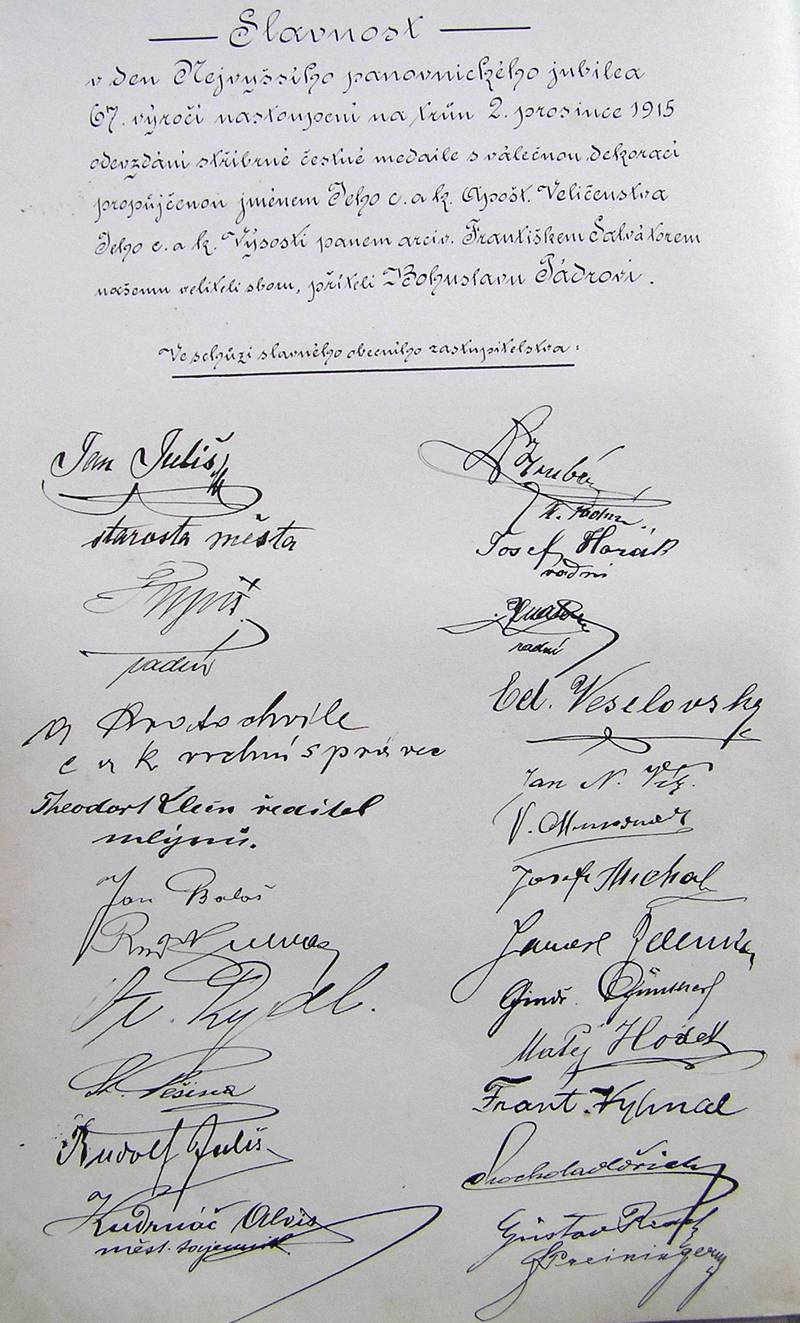 Slavnost
v den Nejvyššího panovnického jubilea
67. výročí nastoupení na trůn 2. prosince 1915
odevzdání stříbrné čestné medaile s válečnou dekorací
propůjčenou jménem Jeho c. a k. Apošt. Veličenstva
Jeho c. a k. Výsostí panem arciv. Františkem Salvátorem
našemu veliteli sboru, příteli Bohuslavu Pádrovi.
Ve schůzi slavného obecního zastupitelstva:
Jan Juliš
starosta města
radní
Kratochvíle
c a k vrchní správce
Theodor Klein ředitel
mlýnů.
Jan Baloš
Rud.
Fr. Rydl.
Pešina
Rudolf Juliš
Kudrnáč Alois
měst. tajemník
Josef Horák
radní
radní
Ed. Veselovský
Jan N. Vík.
V.
Josef Michal
Zelenka
Jindř. Günther
Matěj Hošek
Frant. Vyhnal
Gustav
Preininger